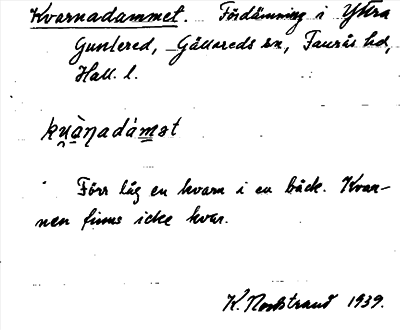 Kvarnadammet. Fördämning i Yttra
Guntered, Gällareds sn, Faurås hd,
Hall. l.
ku̯àn̥adám̥ət
Förr låg en kvarn i en bäck. Kvar-
nen finns icke kvar.
K. Nordstrand 1939.